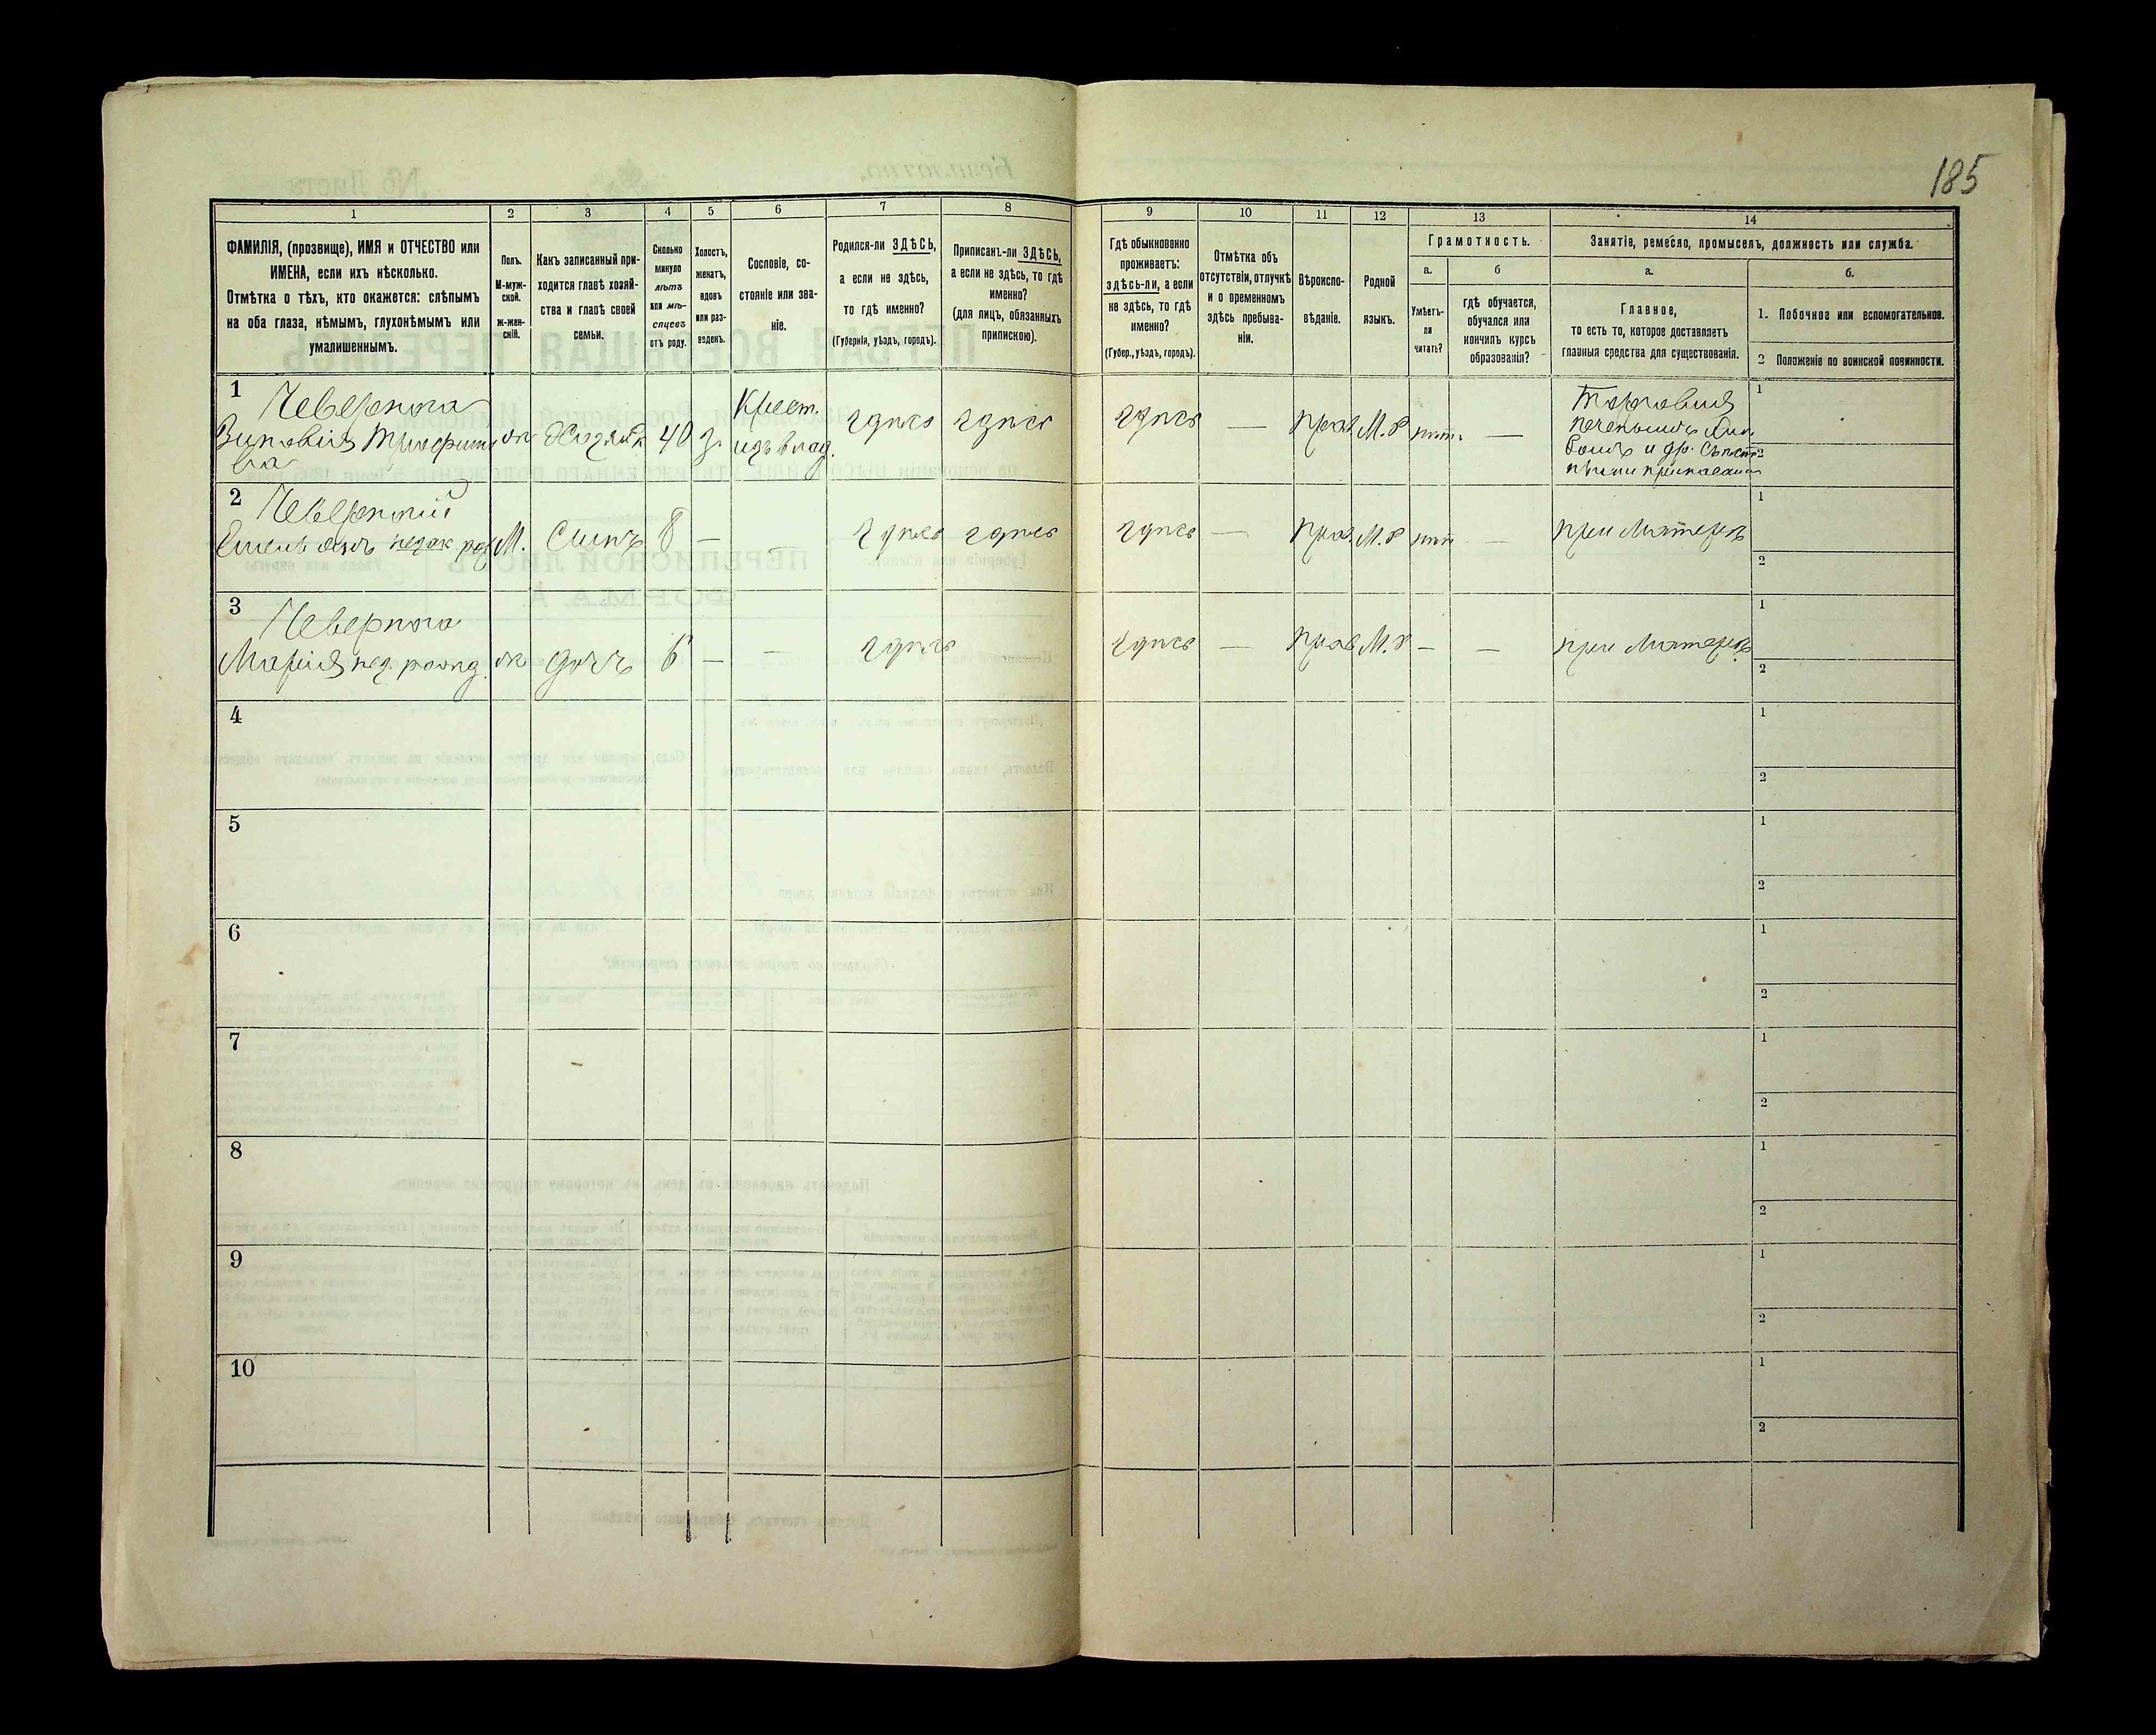 185
1 2 3 4 5 6 7 8 9 10 11 12 13 14
ФАМИЛІЯ, (прозвище), ИМЯ и ОТЧЕСТВО или
ИМЕНА, если ихъ нѣсколько.
Отмѣтка о тѣхъ, кто окажется: слѣпымъ
на оба глаза, нѣмымъ, глухонѣмымъ или
умалишеннымъ.
Полъ.
М-муж-
ской.
ж-жен-
скій.
Какъ записанный при-
ходится главѣ хозяй-
ства и главѣ своей
семьи.
Сколько
минуло
лѣтъ
или мѣ-
сяцевъ
отъ роду.
Холостъ,
женатъ,
вдовъ
или раз-
веденъ.
Сословіе, со-
стояніе или зва-
ніе.
Родился-ли ЗДѢСЬ,
а если не здѣсь,
то гдѣ именно?
(Губернія, уѣздъ, городъ).
Приписанъ-ли ЗДѢСЬ,
а если не здѣсь, то гдѣ
именно?
(для лицъ, обязанныхъ
припискою).
Гдѣ обыкновенно
проживаетъ:
здѣсь-ли, а если
не здѣсь, то гдѣ
именно?
(Губер., уѣздъ, городъ).
Отмѣтка объ
отсутствіи, отлучкѣ
и о временномъ
здѣсь пребыва-
ніи.
Вѣроиспо-
вѣданіе.
Родной
языкъ.
Грамотность.
а.
Умѣетъ-
ли
читать?
б
гдѣ обучается,
обучался или
кончилъ курсъ
образованія?
Занятіе, ремесло, промыселъ, должность или служба.
а.
Главное,
то есть то, которое доставляетъ
главныя средства для существованія.
б.
1. Побочное или вспомогательное.
2 Положеніе по воинской повинности.
1
ж Хозяйк 40
Крест.
изъ влад.
здѣсь здѣсь здѣсь — прав. М.Р нѣтъ —
Торговля
и др.
1
2
2
М. Сынъ 8 — — здѣсь здѣсь здѣсь — прав. М.Р нѣтъ — при Матери
1
2
3
Марія ж дочь 6 — — здѣсь здѣсь — прав М.Р — — при Матери
1
2
4
1
2
5
1
2
6
1
2
7
1
2
8
1
2
9
1
2
10
1
2